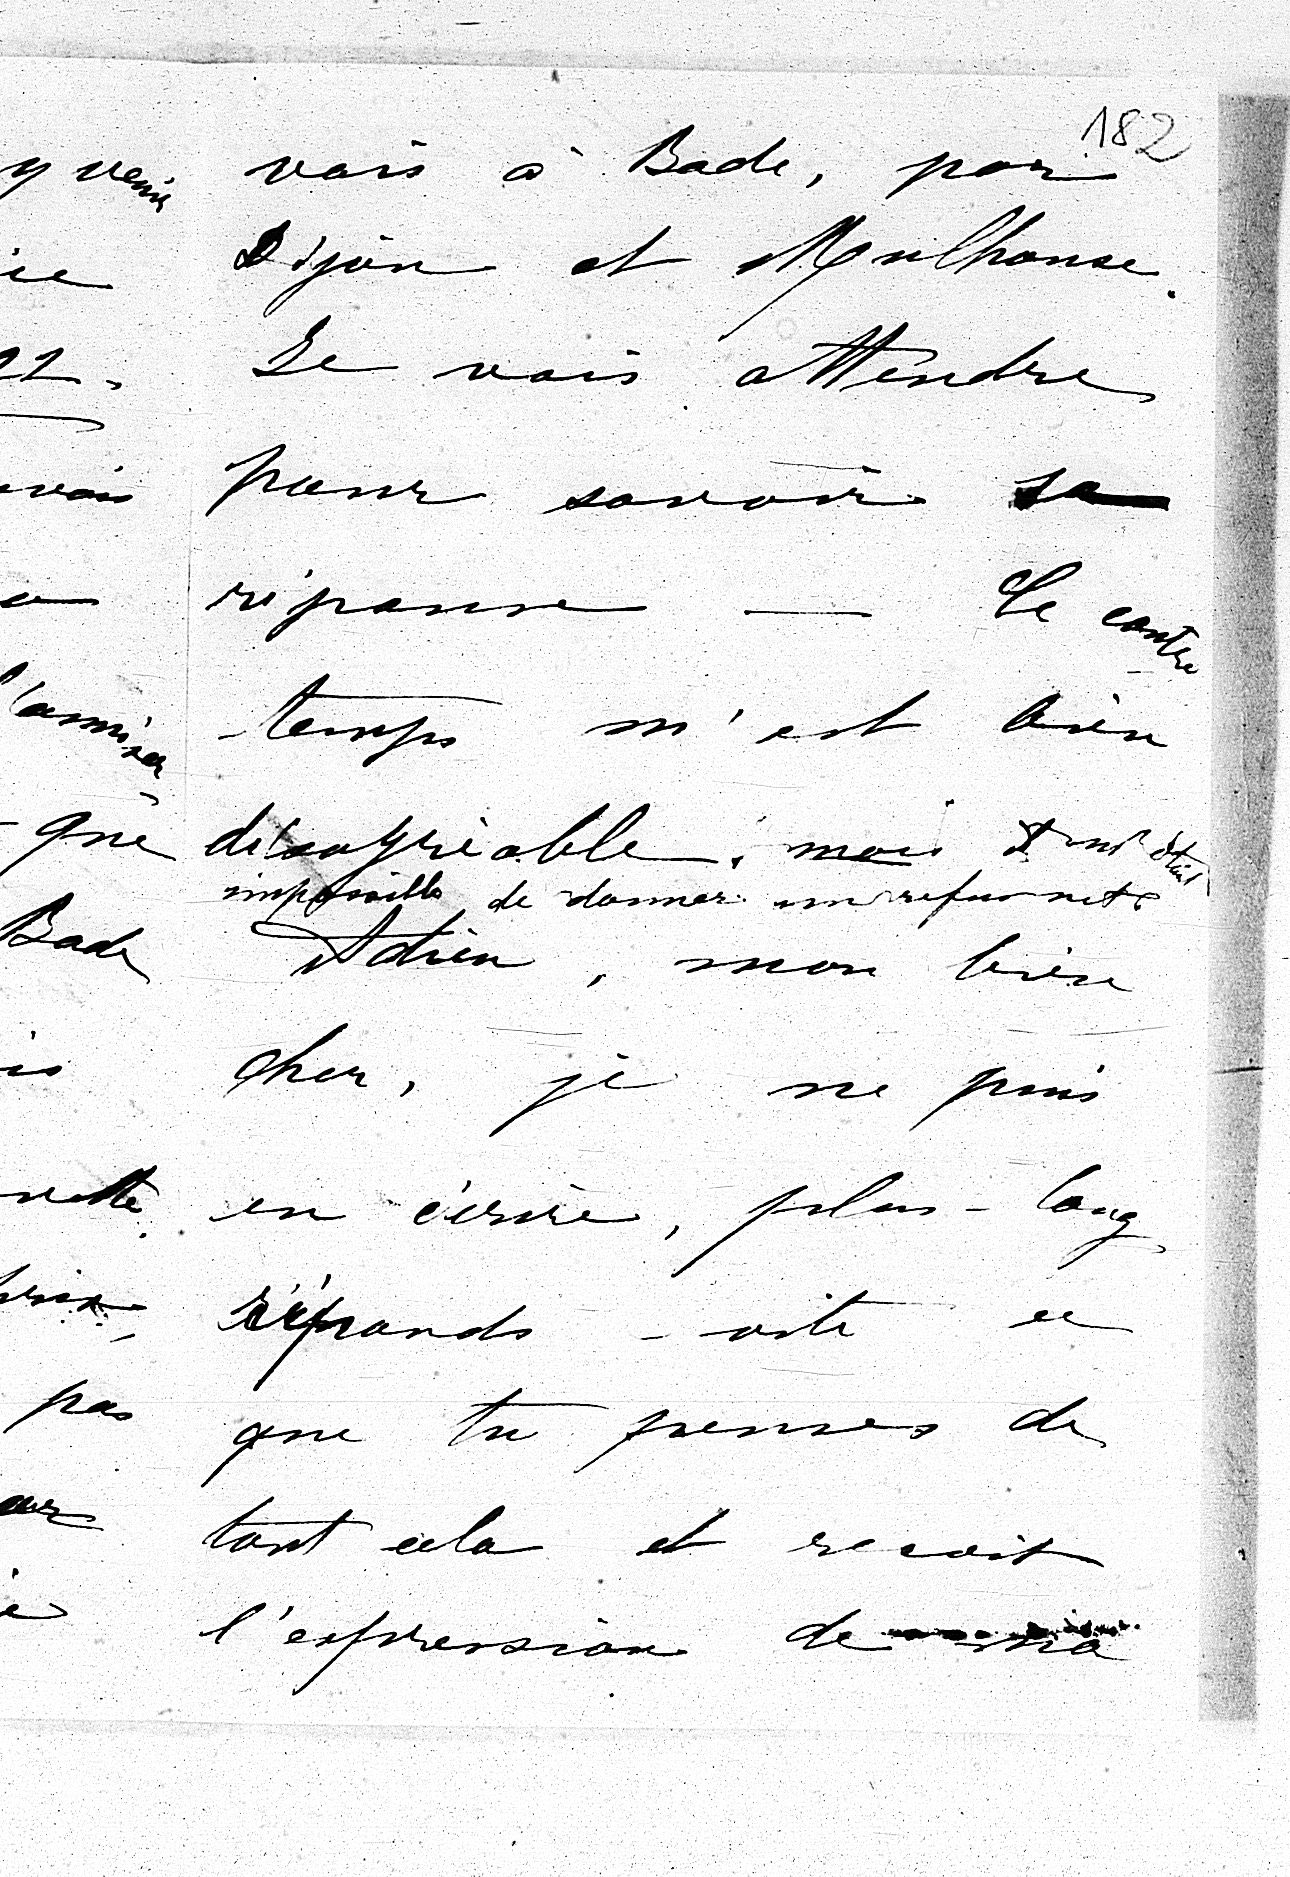 182
vais à Bade, par
Dijon et Mulhouse.
Je vais attendre
pour savoir sa
réponse — Ce contre
temps m'est bien
désagréable, mais il m'était
impossible de donner un refus net.
Adieu, mon bien
cher, je ne puis
en écrire, plus-long
réponds-vite ce
que tu penses de
tout cela et recoit
l'expression de ma
y venir
ie
22.
vais
a
l'amiser
- que
Bade
is
pas